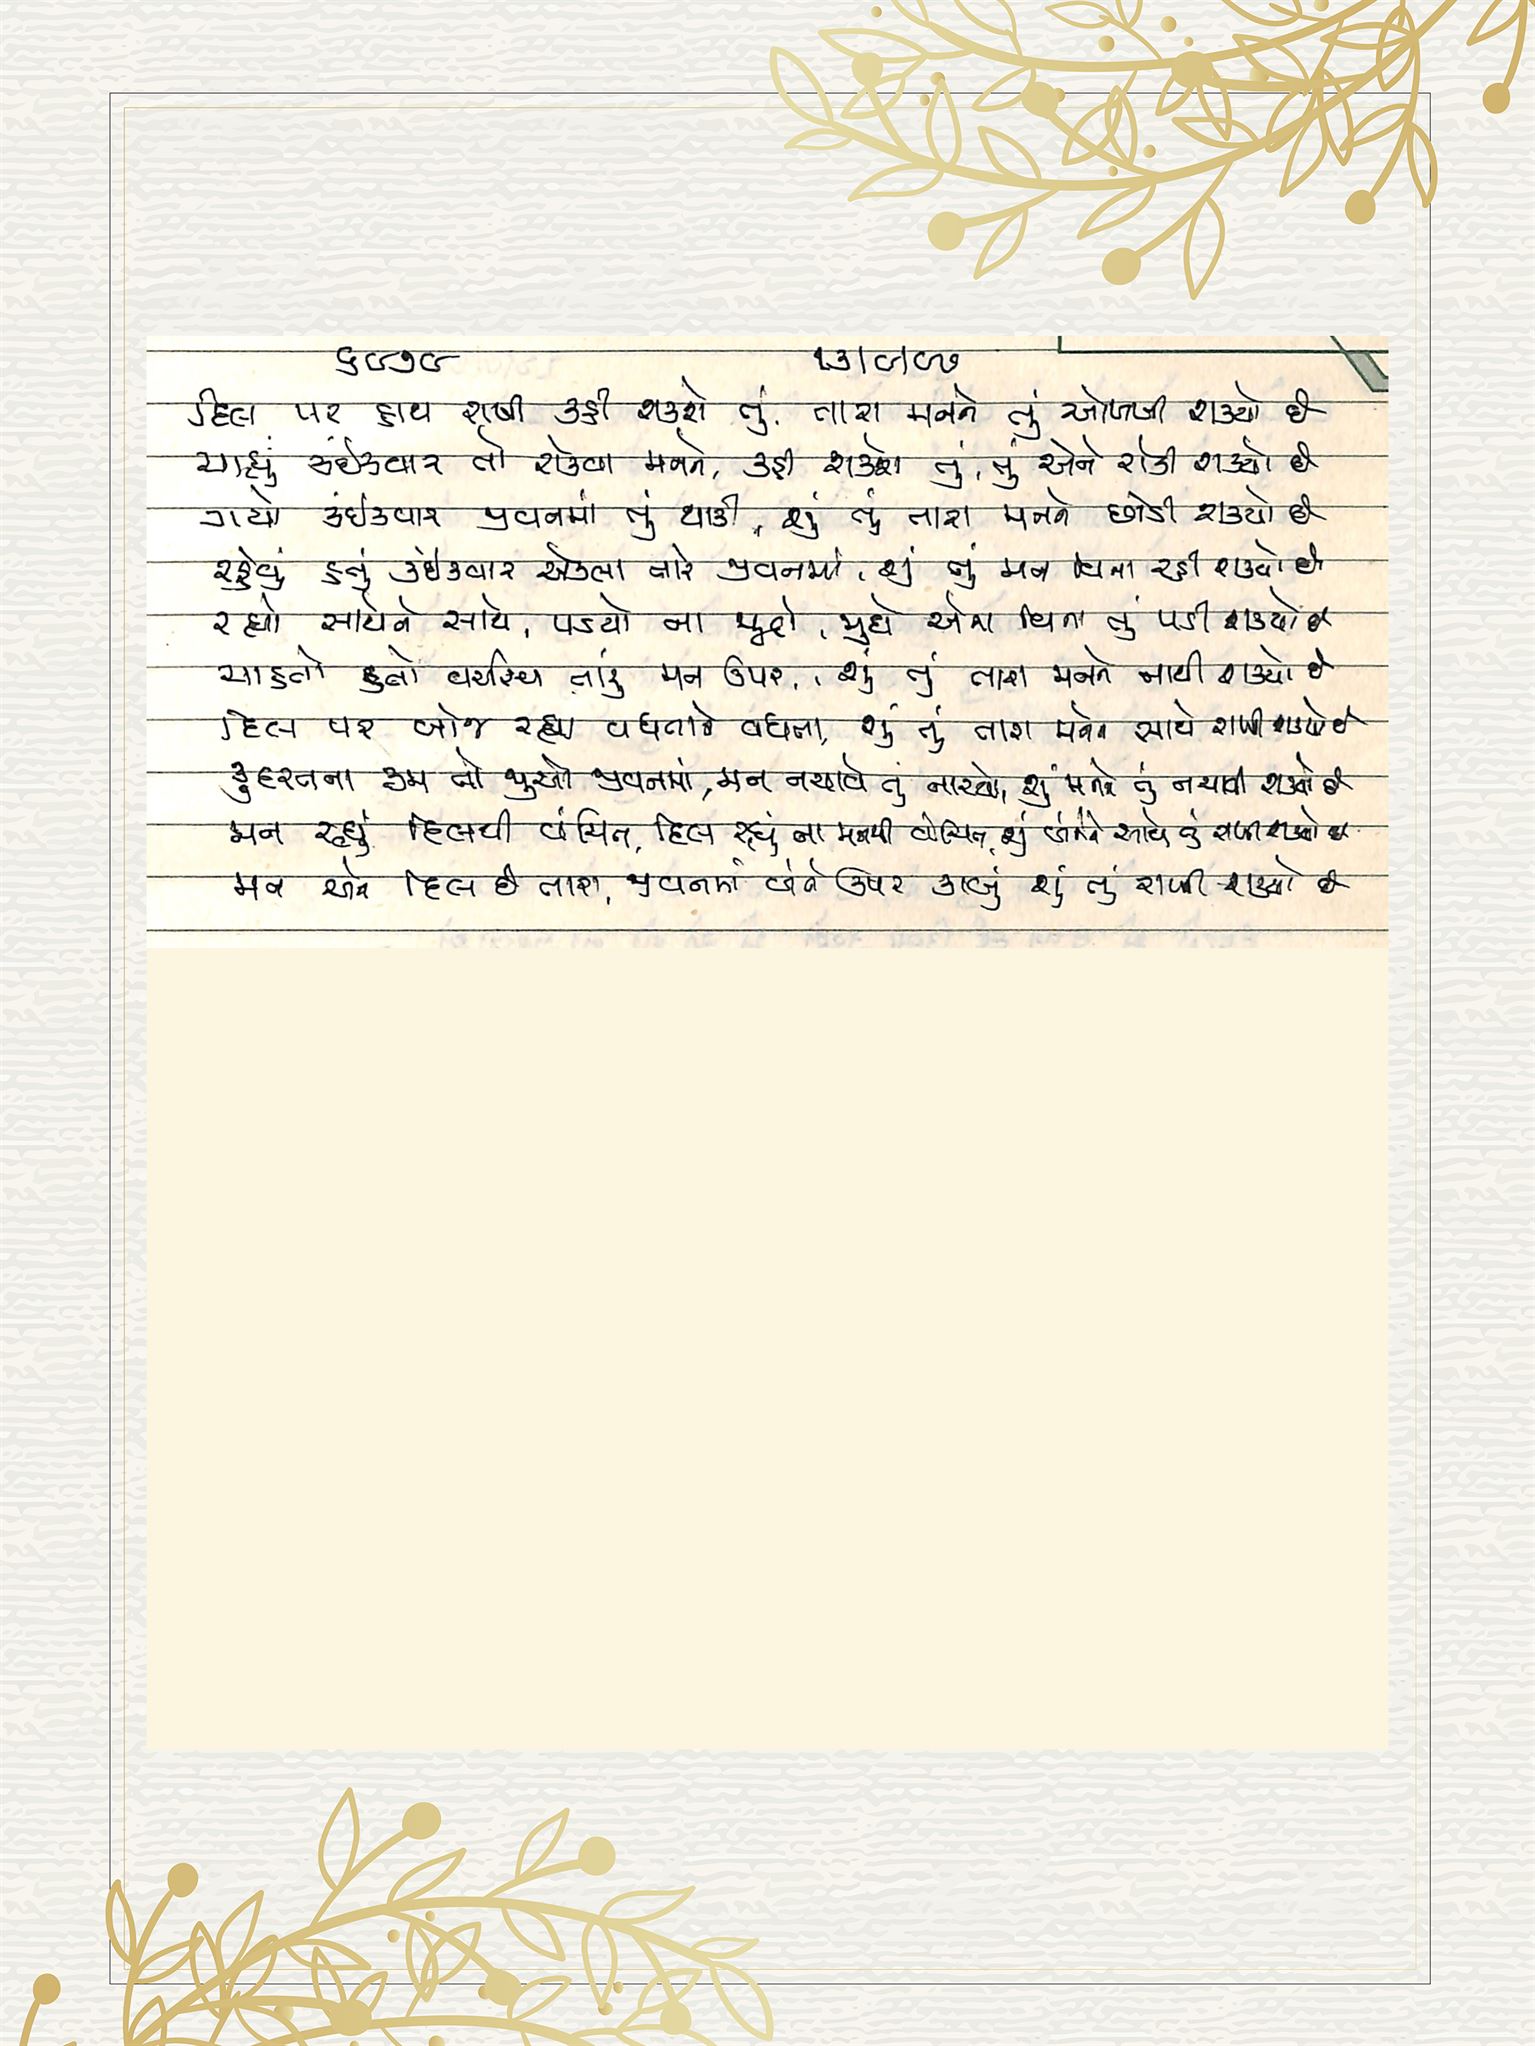 ૬૯૭૯ ૧૩/૯/૯૭
દિલ પર હાથ રાખી કહી શકશે તું. તારા મનને તું ઓળખી શક્યો છે
ચાહ્યું કંઈકવાર તો રોકવા મનને, કહી શકશે તું, તું એને રોકી શક્યો છે
ગયો કંઈકવાર જીવનમાં તું થાકી, શું તું તારા મનને છોડી શક્યો છે
રહેવું હતું કંઈકવાર એકલા તારે જીવનમાં, શું તું મન વિના રહી શક્યો છે
રહ્યો સાથેને સાથે, પડયો ના જુદો, જુદો એના વિના તું પડી શક્યો છે
ચાહતો હતો વર્ચસ્વ તારું મન ઉપર, શું તું તારા મનને નાથી શક્યો છે
દિલ પર બોજ રહ્યા વધતાને વધતા, શું તું તારા મનને સાથે રાખી શક્યો છે
કુદરતના ક્રમ તો જુઓ જીવનમાં, મન નચાવે તું નાચ્યો, શું મનને તું નચાવી શક્યો છે
મન રહ્યું દિલથી વંચિત, દિલ રહ્યું ના મનથી વંચિત, શું બંનેને સાથે તું રાખી શક્યો છે
મન અને દિલ છે તારા, જીવનમાં બંને ઉપર કાબું શું તું રાખી શક્યો છે